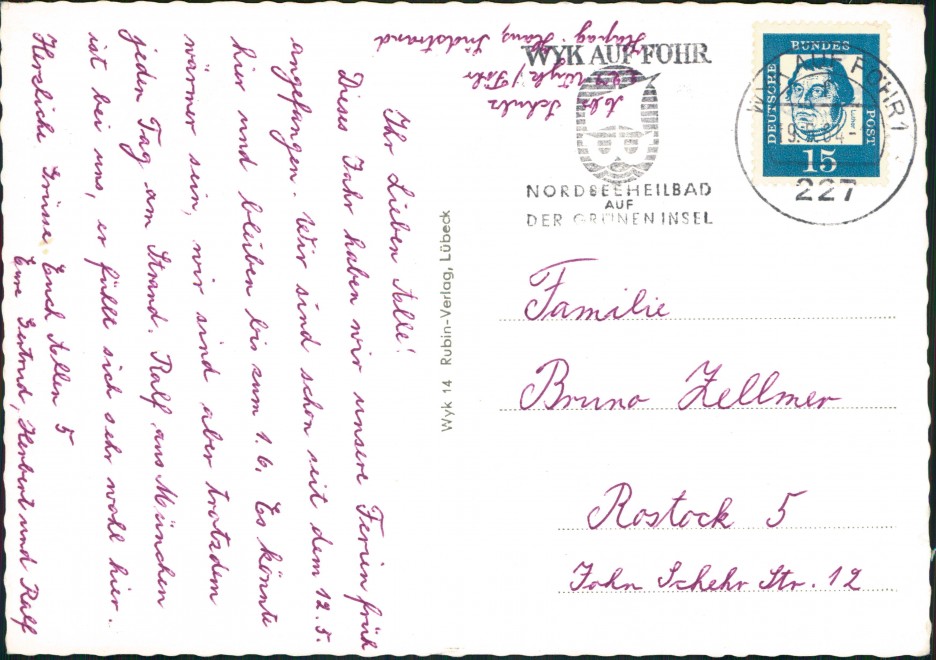 Abs. Schulz
z.Z. Wyk / Föhr
Haus Südstrand
Ihr Lieben Alle!
Dieses Jahr haben wir unsere Ferien früh
angefangen. Wir sind schon seit dem 12.5.
hier und bleiben bis zum 1.6. Es könnte
wärmer sein, wir sind aber trotzdem
jeden Tag am Strand. Ralf aus München
ist bei uns, er fühlt sich sehr wohl hier.
Herzliche Grüsse Euch Allen 5
Eure Gertrud, Herbert und Ralf
Wyk 14 Rubin-Verlag, Lübeck
WYK AUF FÖHR
NORDSEEHEILBAD
AUF
DER GRÜNEN INSEL
DEUTSCHE
BUNDES
POST
15
AUF FÖHR 1
227
Familie
Bruno Zellmer
Rostock 5
John Schehr Str. 12